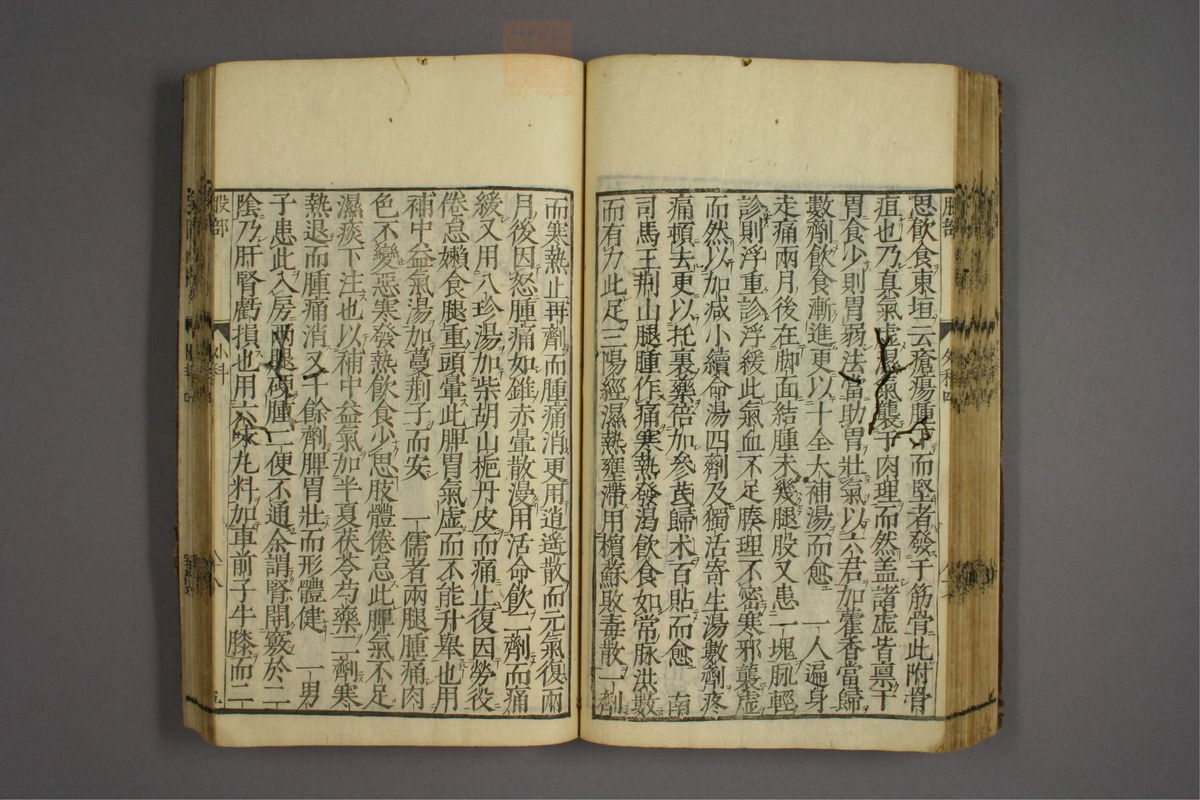 思飲食東垣云瘡瘍腫下而堅者發于筋骨此附骨
疽也乃真氣虛濕氣襲于肉理而然盖諸虛皆禀于
胃食少則胃弱法當助胃壯氣以六君加藿香當歸
數劑飲食漸進更以十全大補湯而愈 一人遍身
走痛兩月後在脚面結腫未幾腿股又患一塊脉輕
診則浮重診浮緩此氣血不足腠理不密寒邪襲虛
而然以加减小續命湯四劑及獨活寄生湯數劑疼
痛頓去更以托裏藥倍加參芪歸术百貼而愈 南
司馬王荆山腿腫作痛寒熱發渴飲食如常脉洪數
而有力此足三陽經濕熱壅滯用檳蘇敗毒散一劑
而寒熱止再劑而腫痛消更用逍遥散而元氣復兩
月後因怒腫痛如錐赤暈散漫用活命飲二劑而痛
緩又用八珍湯加柴胡山梔丹皮而痛止復因勞役
倦怠嬾食腿重頭暈此脾胃氣虛而不能升舉也用
補中益氣湯加蔓荆子而安 一儒者兩腿腫痛肉
色不變惡寒發熱飲食少思肢體倦怠此脾氣不足
濕痰下注也以補中益氣加半夏茯苓芍藥二劑寒
熱退而腫痛消又十餘劑脾胃壯而形體健 一男
子患此入房兩腿硬腫二便不通余謂腎開竅於二
陰乃肝腎虧損也用六味丸料加車前子牛膝而二